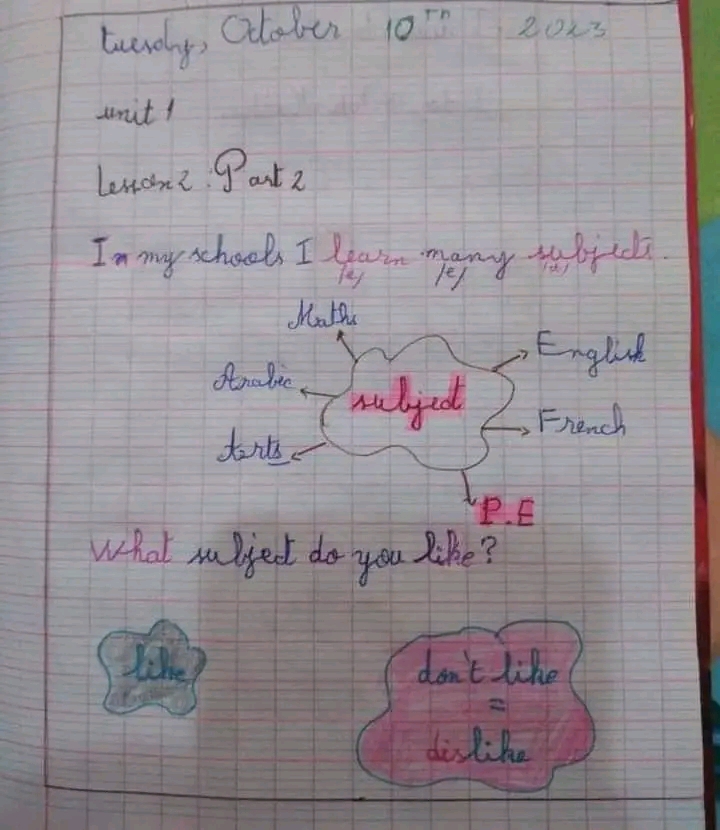 tuesday, October 10th 2023
unit 1
Lesson 2 : Part 2
In my schools I learn many subjects.
/ɛ/ /ɛ/ /ʌ/
Maths
Arabic
Arts
subject
English
French
P.E
What subject do you like?
like
don't like
=
dislike